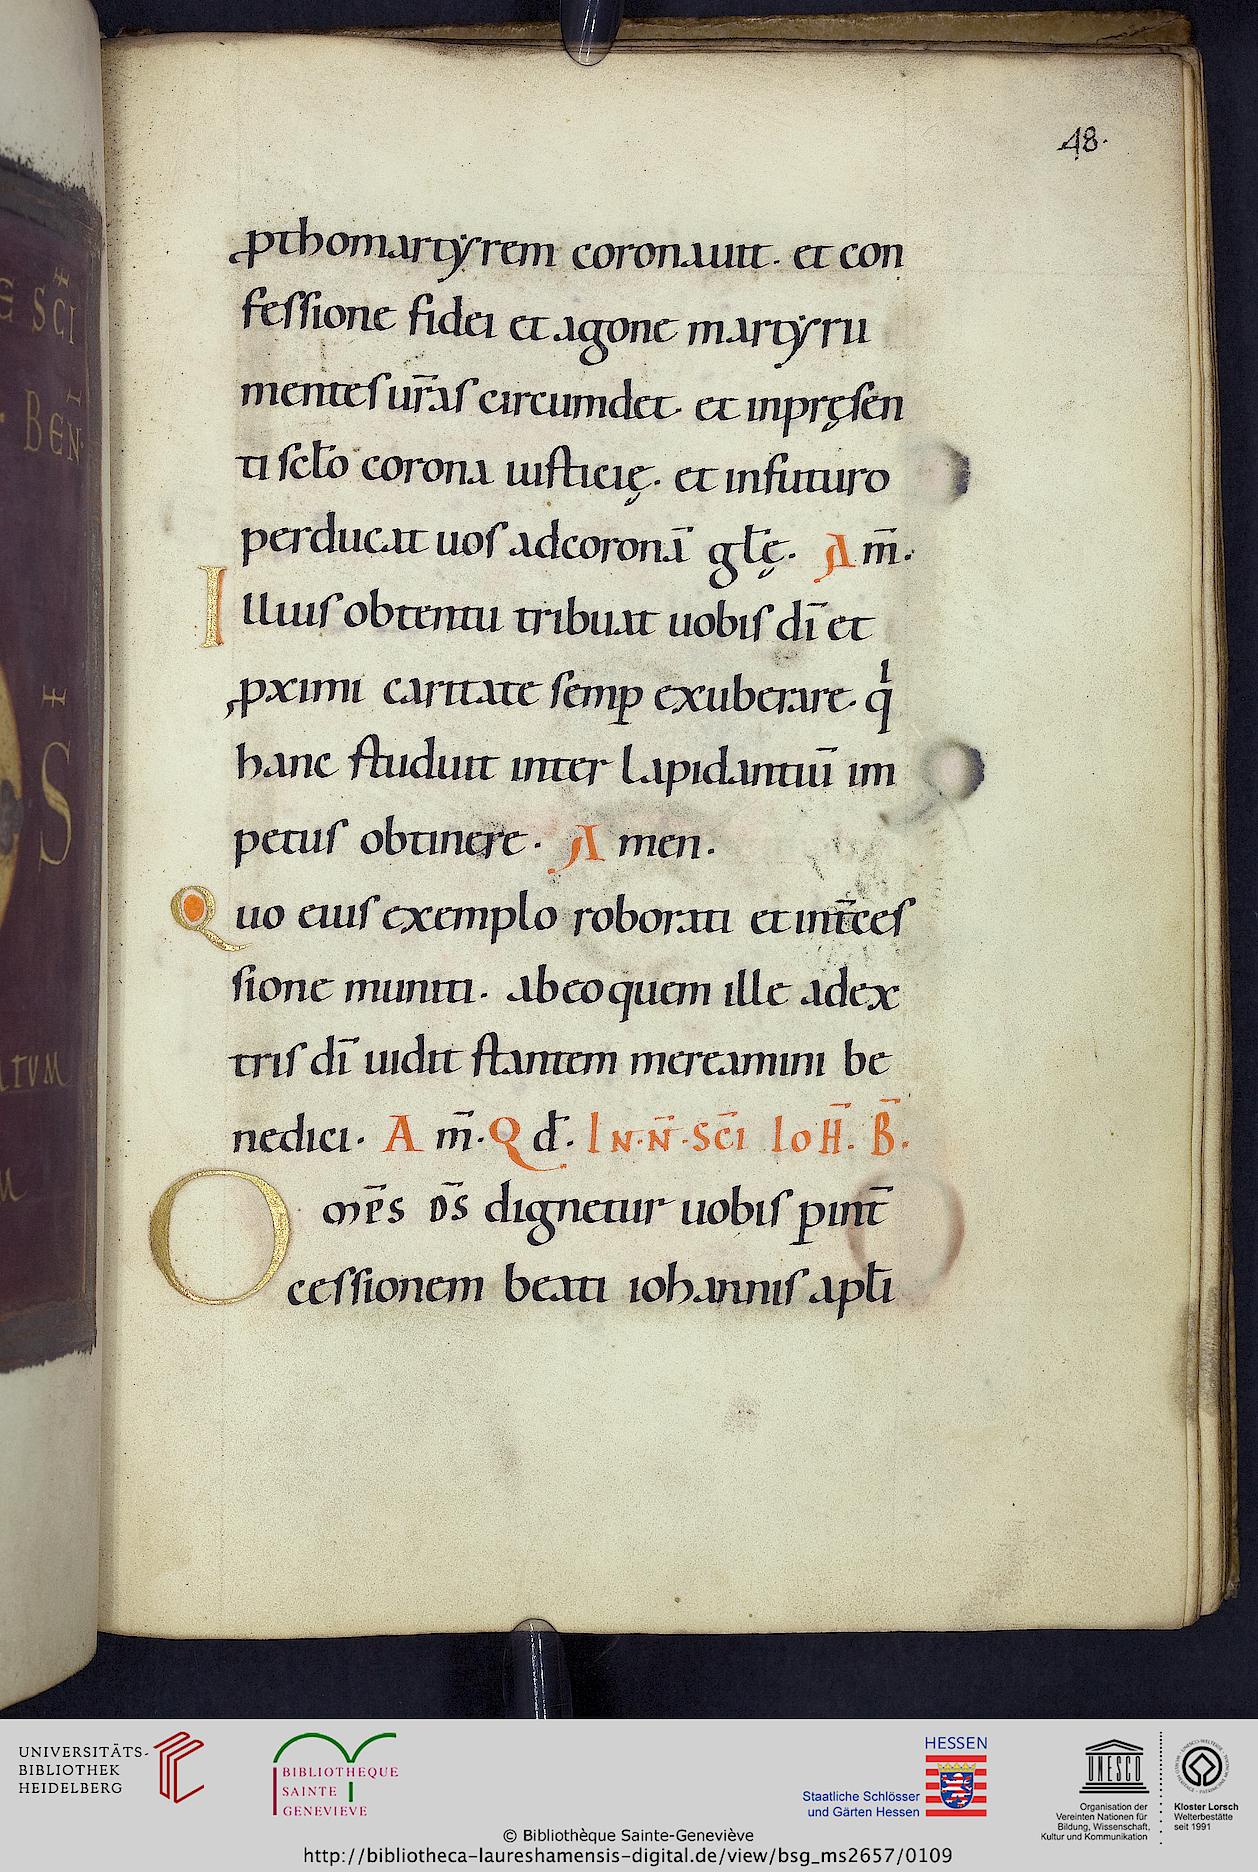 48.
ꝓthomartẏrem coronauit. et con
fessione fidei et agone martẏru
mentes ur̄as circumdet. et inpręsen
ti scło corona iusticię. et infuturo
perducat uos adcoronā głę. Am̄.
Illius obtentu tribuat uobis dī et
ꝓximi caritate semp̲ exuberare. qͥ
hanc studuit inter lapidantiū im
petus obtinere. Amen.
Quo eius exemplo roborati et int̄ces
sione muniti. abeo quem ille adex
tris dī uidit stantem mereamini be
nedici. Am̄. Q đ. IN. N̄. SC̄I IOH̄. B̄.
Omp̄s D̄S dignetur uobis ꝑint̄
cessionem beati iohannis apłi
SC̄I
BEN̄
S
UNIVERSITÄTS-
BIBLIOTHEK
HEIDELBERG
BIBLIOTHEQUE
SAINTE
GENEVIEVE
HESSEN
Staatliche Schlösser
und Gärten Hessen
UNESCO
Organisation der
Vereinten Nationen für
Bildung, Wissenschaft,
Kultur und Kommunikation
Kloster Lorsch
Welterbestätte
seit 1991
© Bibliothèque Sainte-Geneviève
http://bibliotheca-laureshamensis-digital.de/view/bsg_ms2657/0109